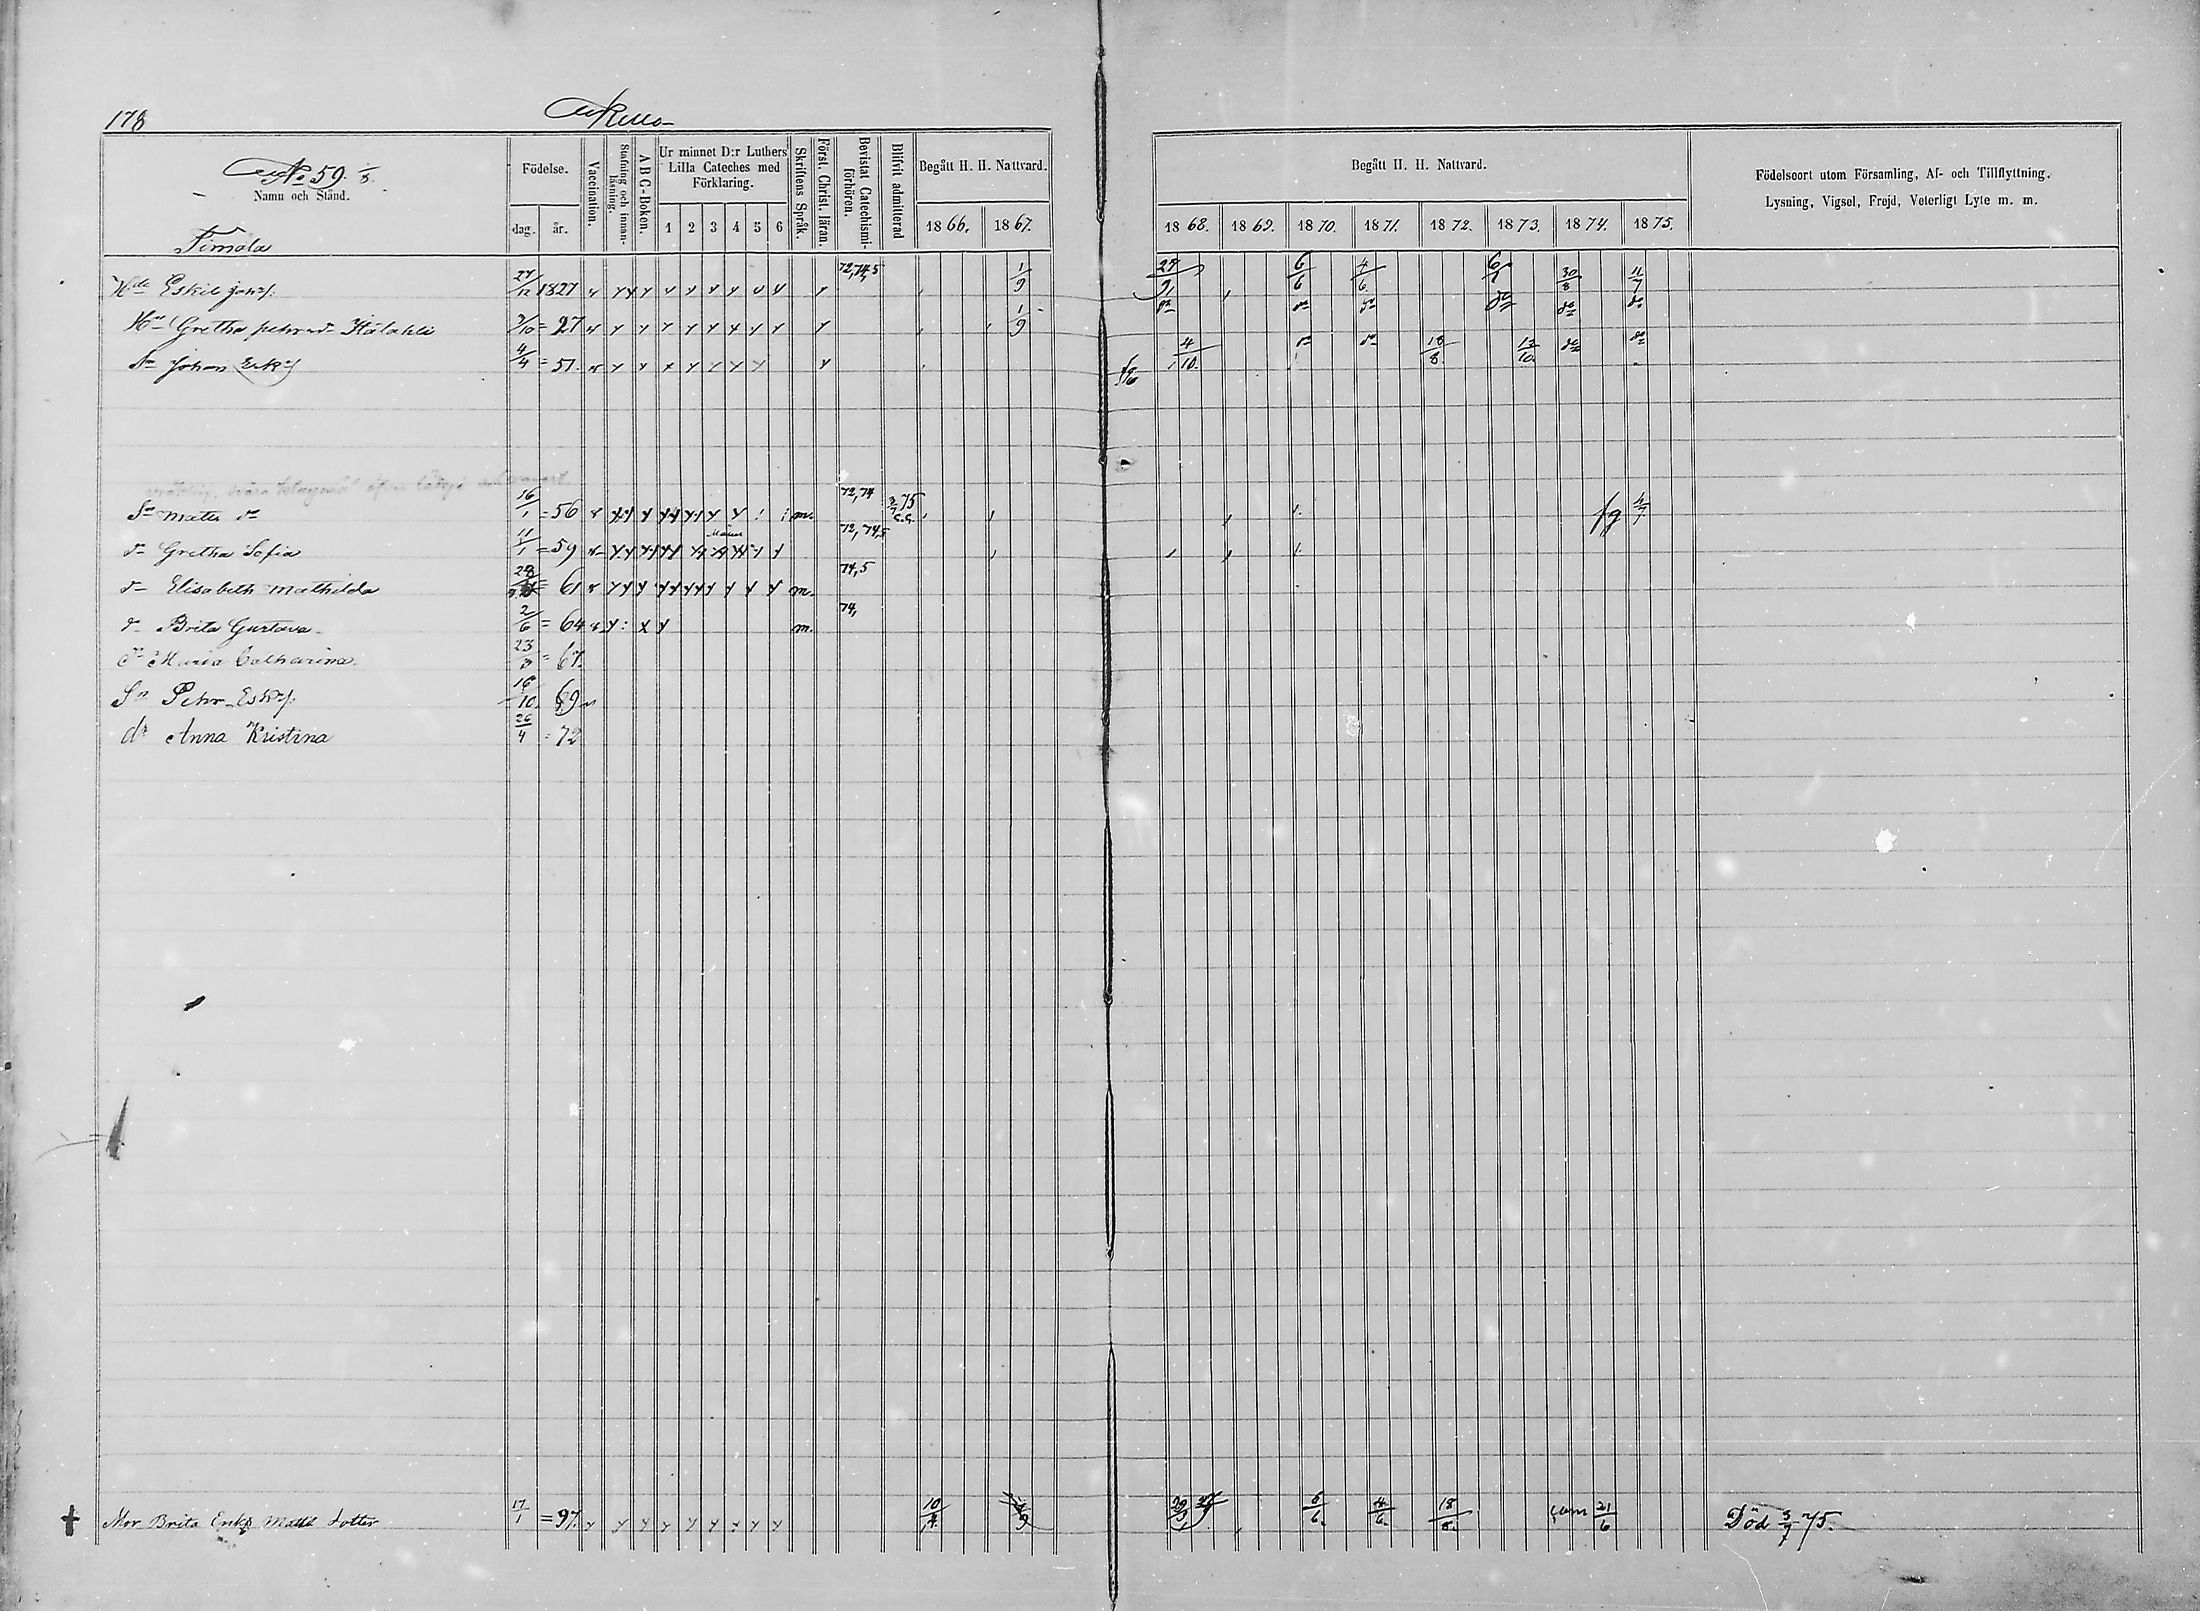 178
No 59. 1/8.
Namn och Stånd.
Födelse.
dag. år.
Vaccination.
Stafning och innanläsning.
A B C-Boken.
Ur minnet D:r Luthers Lilla Cateches med Förklaring.
1 2 3 4 5 6
Skriftens Språk.
Först. Christ. läran.
Bevistat Catechismiförhören.
Blifvit admitterad
Begått H. H. Nattvard.
1866. 1867.
Begått H. H. Nattvard.
1868. 1869. 1870. 1871. 1872. 1873. 1874. 1875.
Födelseort utom Församling, Af- och Tillflyttning,
Lysning, Vigsel, Frejd, Veterligt Lyte m. m.
Timola
Eskil 27/12 1827 72,74,5 1/9 6/6 4/6 30/8 11/7
Gretha = 27 1/9 do do do do do
Johan 4/4 = 51. 4/10. do do 18/8. 12/10. do do
Sn Matts do 16/1 = 56 m. 72,74 3/7 75 fg 4/7
dr Gretha Sofia 11/1 = 59 72,74,5
dr Elisabeth Mathilda 28 = 61 m. 74,5
dr Brita Gustava 2/6 = 64 m. 74,
dr Maria Catharina 23/3 = 67.
Sn Pehr Esk:s. 16/10. 69
dr Anna Kristina 26/4 = 72
Mor Brita Enka Matts dotter 17/1 = 97. 10/4. 6/6. 4/6. 18/8. 21/6 Död 3/7 75.